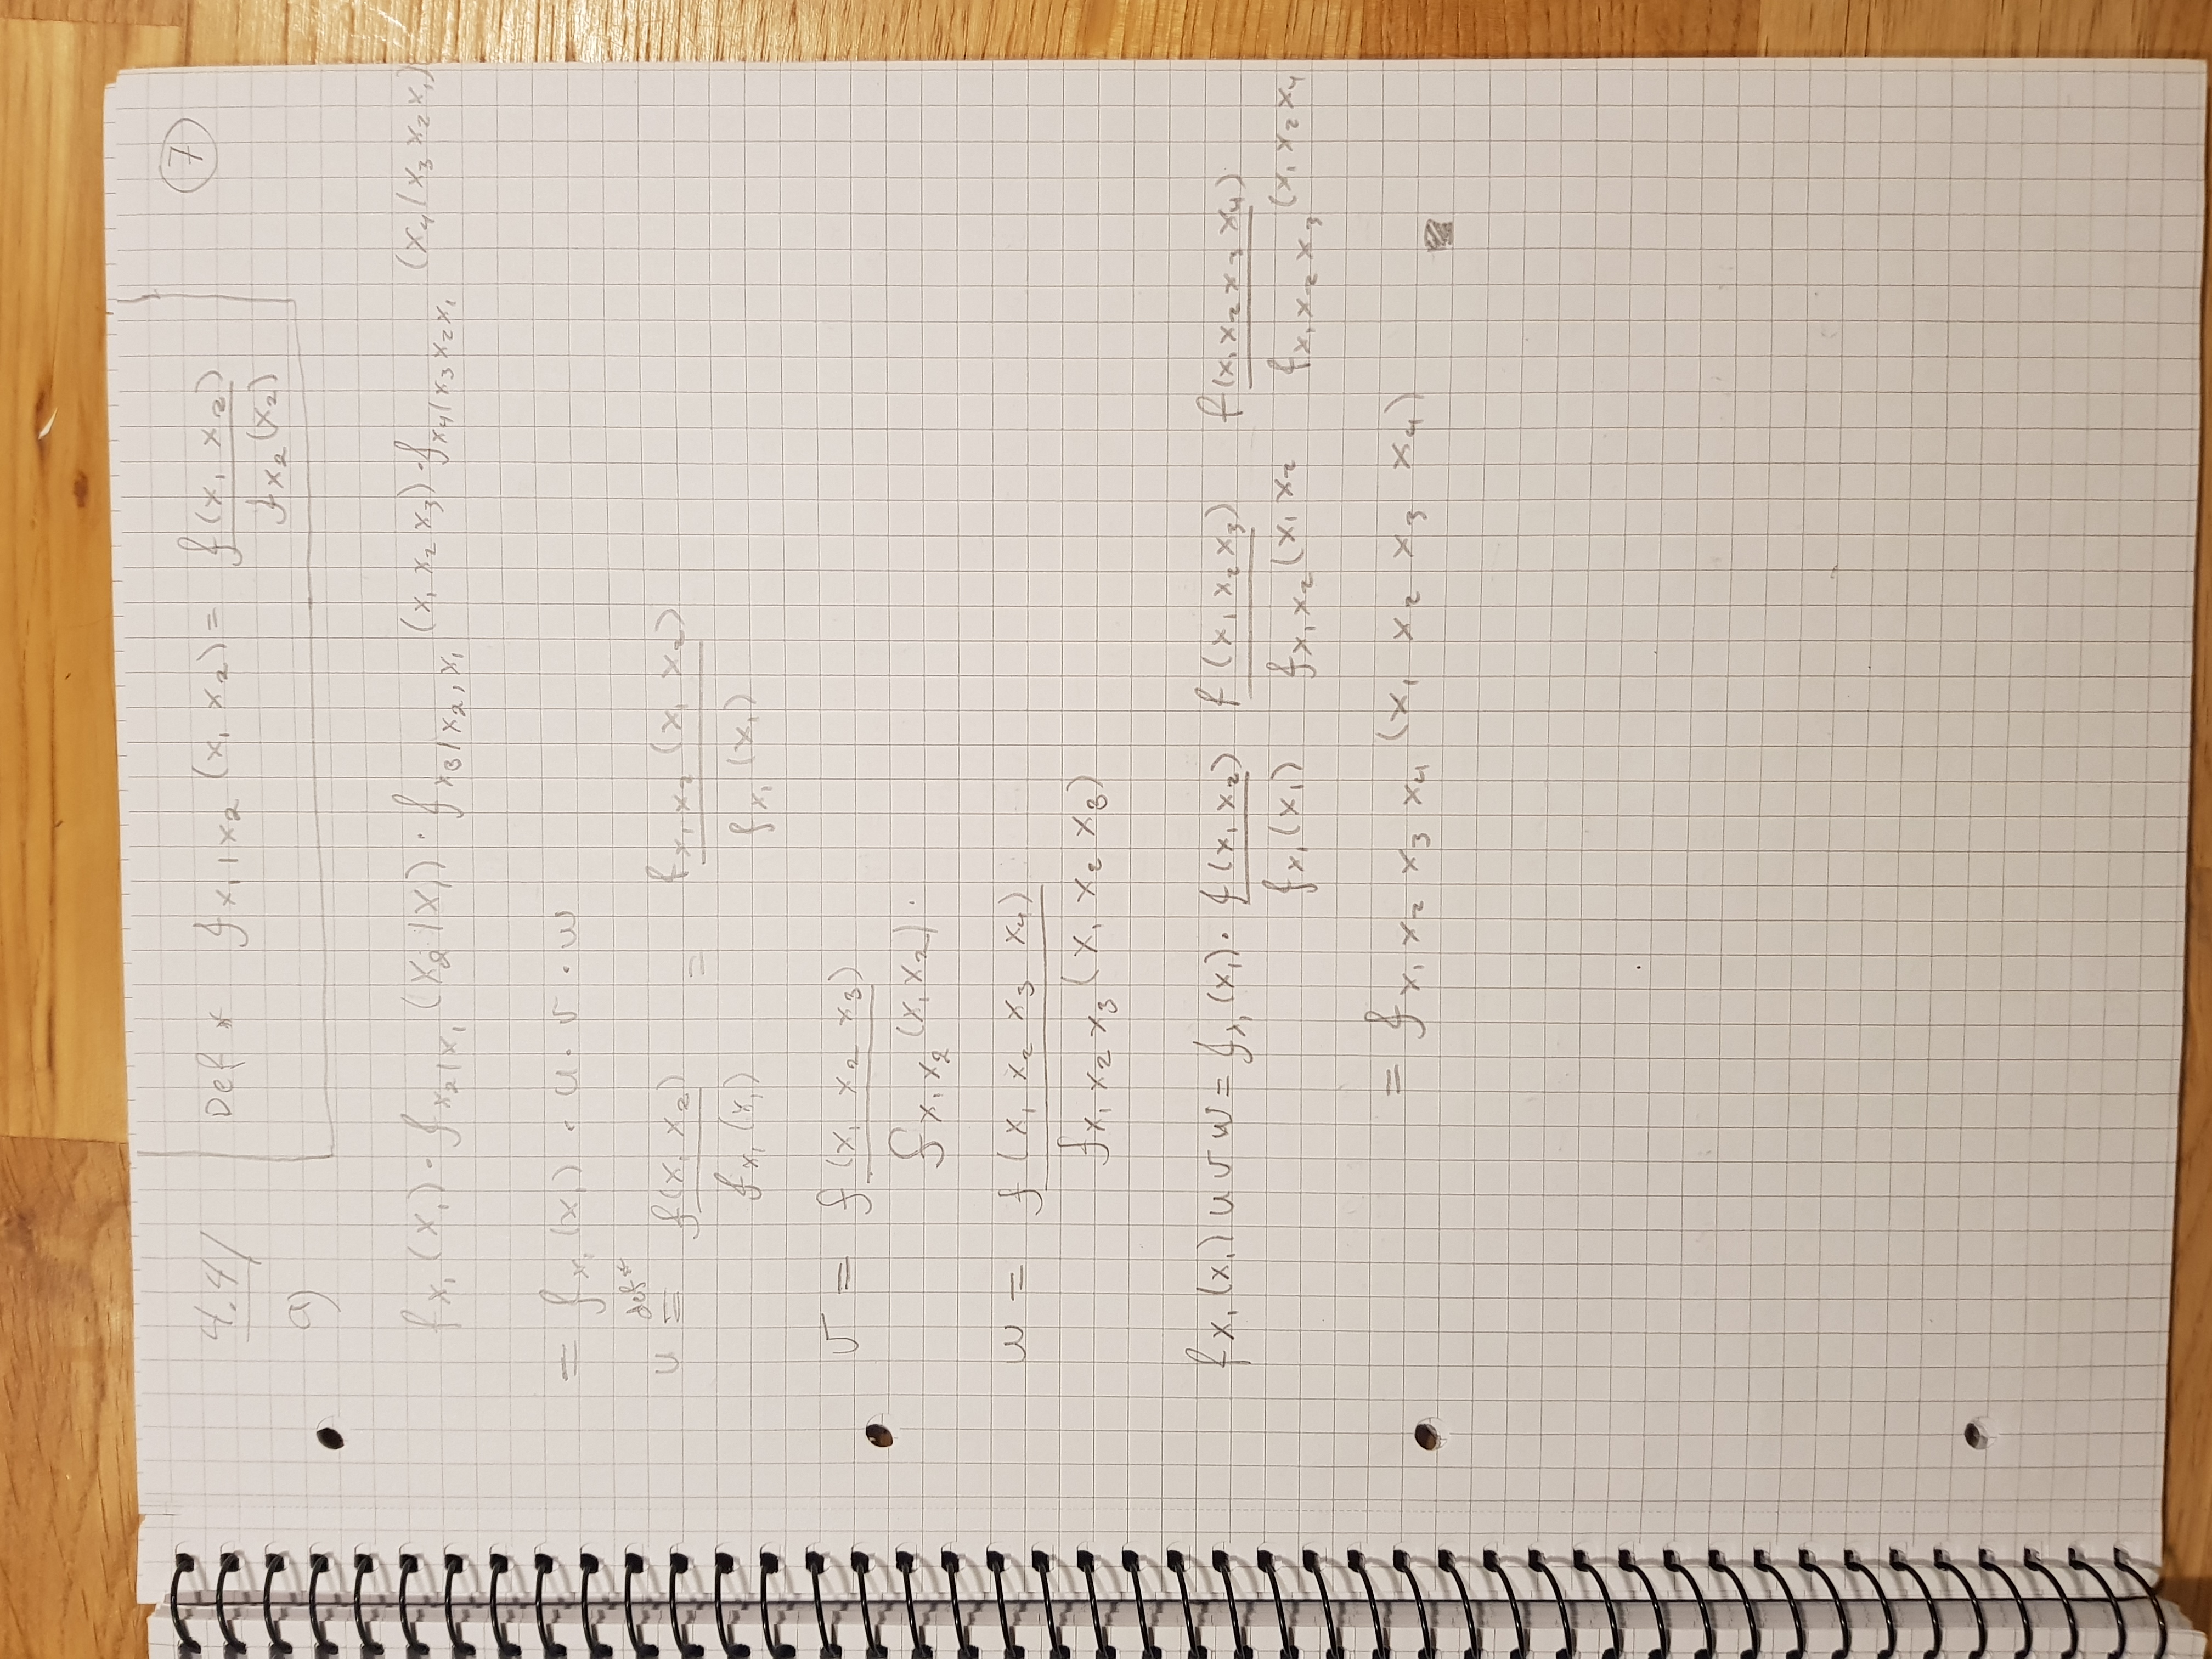 7
4.4/ Def * f_{X_1|X_2} (x_1 x_2) = f(x_1 x_2) / f_{X_2}(x_2)
a)
f_{X_1}(x_1) · f_{X_2|X_1}(x_2|x_1) · f_{X_3|X_2,X_1}(x_1 x_2 x_3) · f_{X_4|X_3X_2X_1}(x_4|x_3 x_2 x_1)
= f_{X_1}(x_1) · u · v · w
u =^{def*} f(x_1 x_2) / f_{X_1}(x_1) = f_{X_1X_2}(x_1 x_2) / f_{X_1}(x_1)
v = f(x_1 x_2 x_3) / f_{X_1X_2}(x_1 x_2) .
w = f(x_1 x_2 x_3 x_4) / f_{X_1X_2X_3}(x_1 x_2 x_3)
f_{X_1}(x_1) u v w = f_{X_1}(x_1) · f(x_1 x_2) / f_{X_1}(x_1) f(x_1 x_2 x_3) / f_{X_1X_2}(x_1 x_2 f(x_1 x_2 x_3 x_4) / f_{X_1X_2X_3}(x_1 x_2 x_4
= f_{X_1X_2X_3X_4}(x_1 x_2 x_3 x_4)